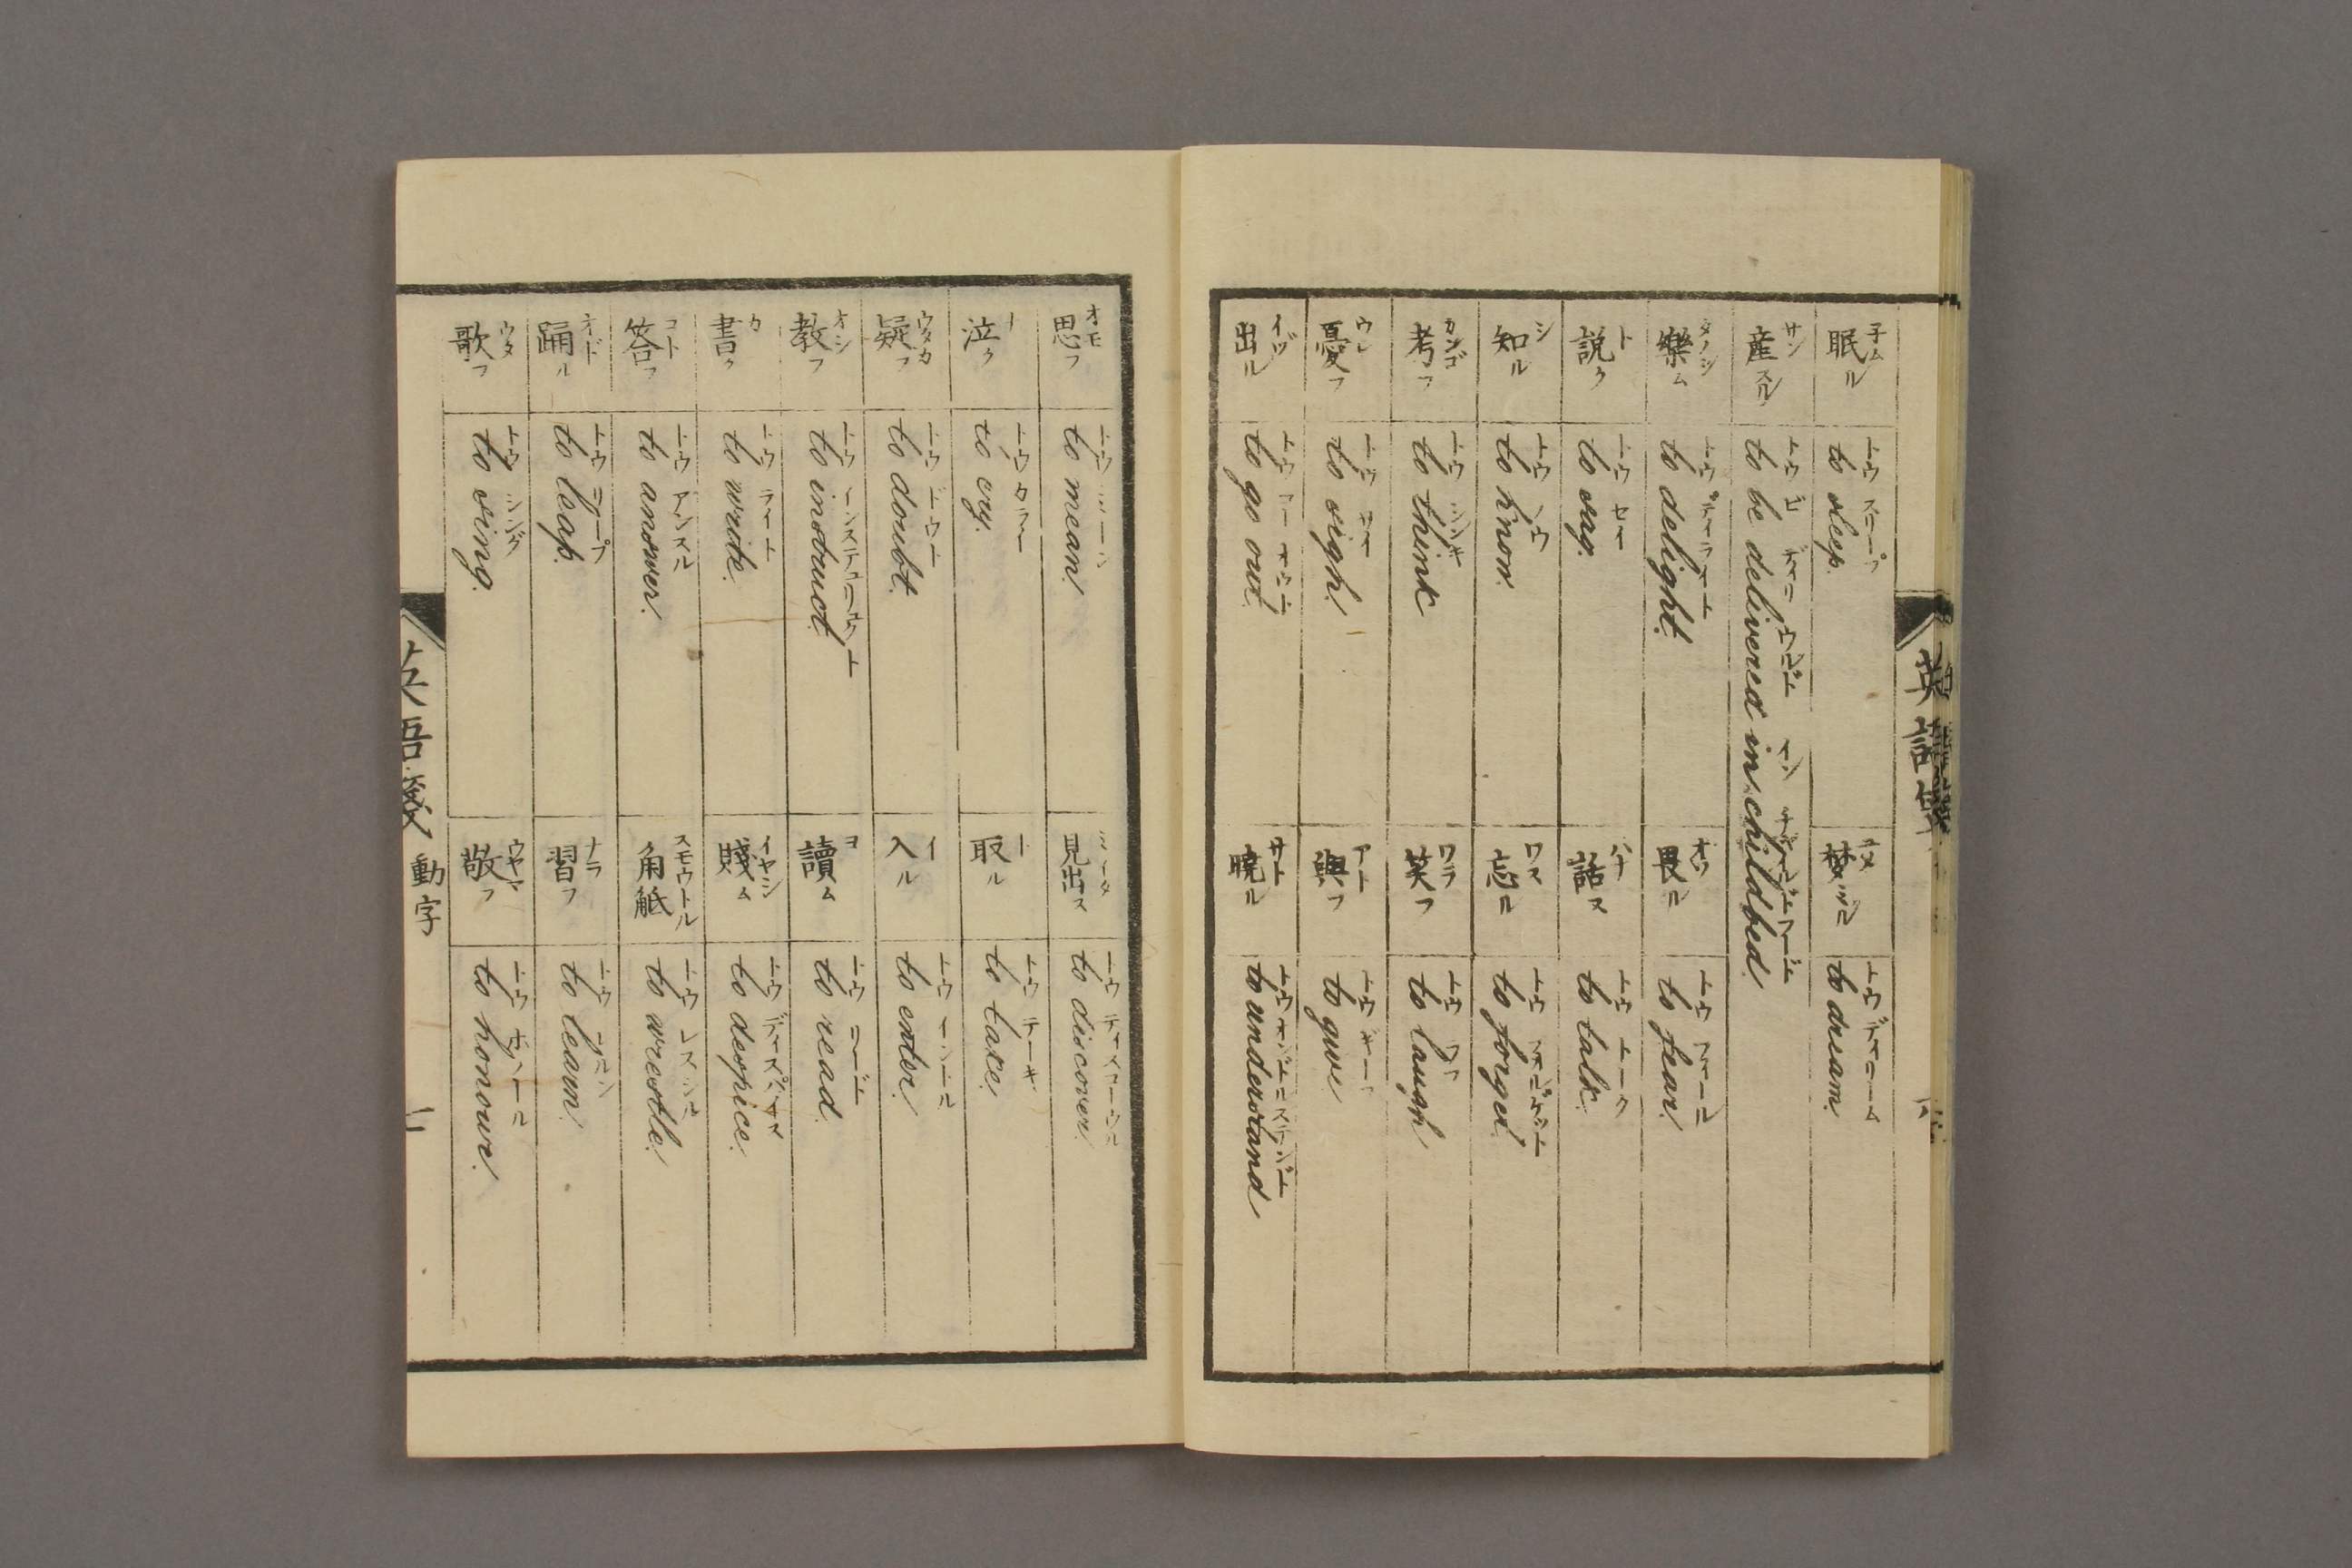 眠ル 子ム トウ スリープ to sleep.
夢ミル ユメ トウ ディリーム to dream.
産スル サン トウ ビ ディリウルド イン to be delivered in childbed.
樂ム タノシ トウ ディライト to delight.
畏ル オソ トウ フィール to fear.
説ク ト トウ セイ to say.
話ス ハナ トウ トーク to talk.
知ル シ トウ ノウ to know.
忘ル ワス トウ フォルゲット to forget.
考フ カンゴ トウ シンキ to think
笑フ ワラ トウ ラフ to laugh
憂フ ウレ トウ サイ to sigh.
與フ アト トウ ギーフ to give
出ル イヅ トウ ゴー オウト to go out.
曉ル サト トウ to understand
思フ オモ トウ ミーン to mean.
見出ス ミイダ トウ ディスコーウル to discover.
泣ク ナ トウ カライ to cry.
取ル ト トウ テーキ to take.
疑フ ウタカ トウ ドウト to doubt.
入ル イ トウ イントル to enter.
教フ オシ トウ インステュリュクト to instruct.
讀ム ヨ トウ リード to read.
書ク カ トウ ライト to write.
賤ム イヤシ トウ ディスパイス to despice.
答フ コト トウ アンスル to answer.
角觝 スモウトル トウ レスシル to wrestle.
踊ル オド トウ リープ to leap.
習フ ナラ トウ ルルン to learn.
歌フ ウタ トウ シング to sing.
敬フ ウヤマ トウ ホノール to honour.
英語箋 動字